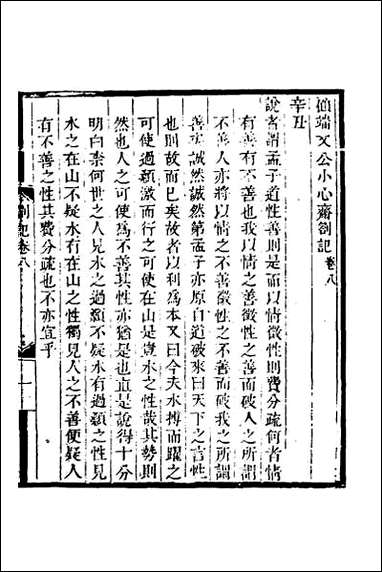 顧端文公小心齋劄記卷八
辛丑
說者謂孟子道性善則是而以情徵性則費分疏何者情
有善有不善也我以情之善徵性之善而破人之所謂
不善人亦將以情之不善徵性之不善而破我之所謂
善矣誠然誠然第孟子亦原自道破來曰天下之言性
也則故而已矣故者以利為本又曰今夫水搏而躍之
可使過顙激而行之可使在山是豈水之性哉其勢則
然也人之可使為不善其性亦猶是也直是說得十分
明白柰何世之人見水之過顙不疑水有過顙之性見
水之在山不疑水有在山之性獨見人之不善便疑人
有不善之性其費分疏也不亦宜乎
劄記卷八
一